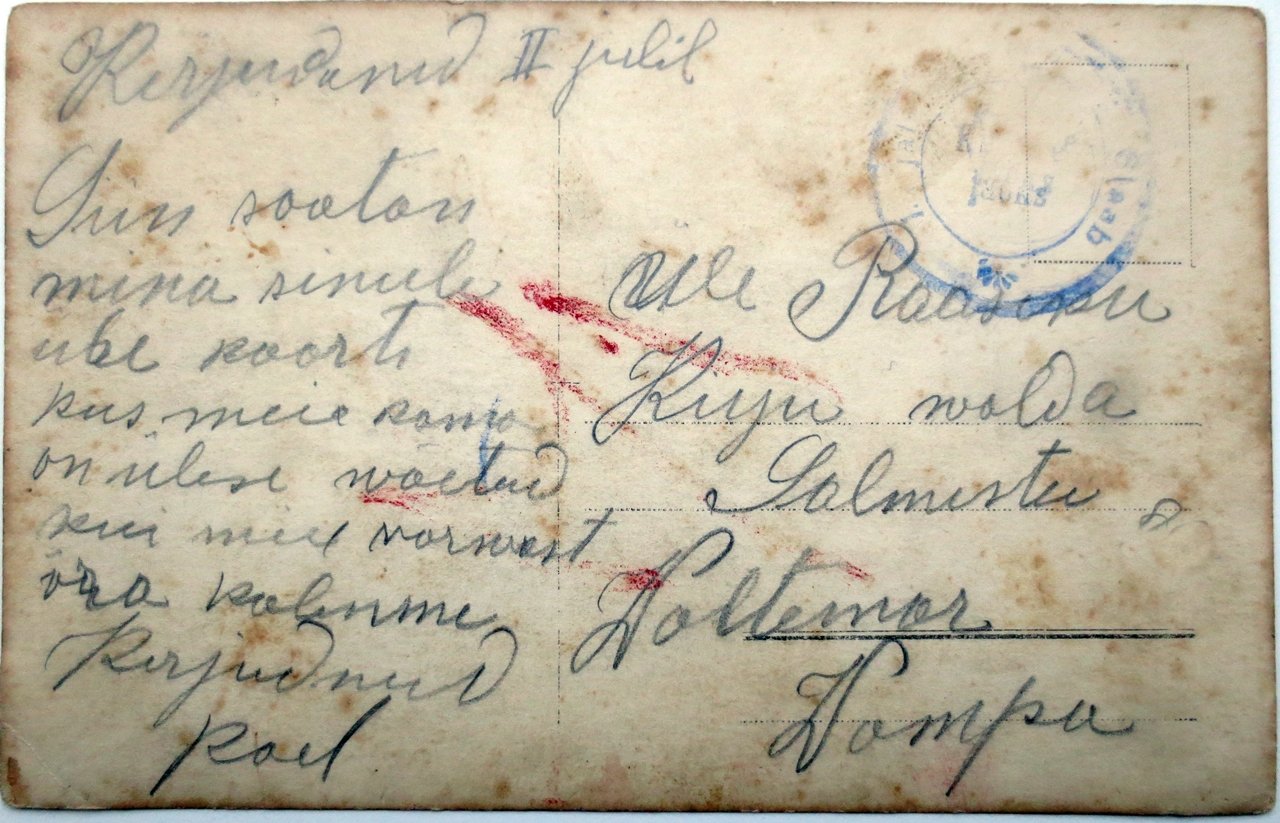 Kerjudanud II julil
Siin saatan
mina sinule
ühe kaarti
kus meie kama
on ülese wäetud
kui meie narwast
ära kolinme
Kerjudnud
Kael
Üle Raasiku
Kiiju walda
Salmistu
Woltemar
Wompa